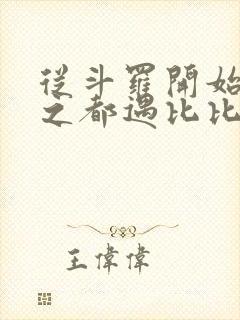 從斗羅開始
之都遇比比
王偉偉